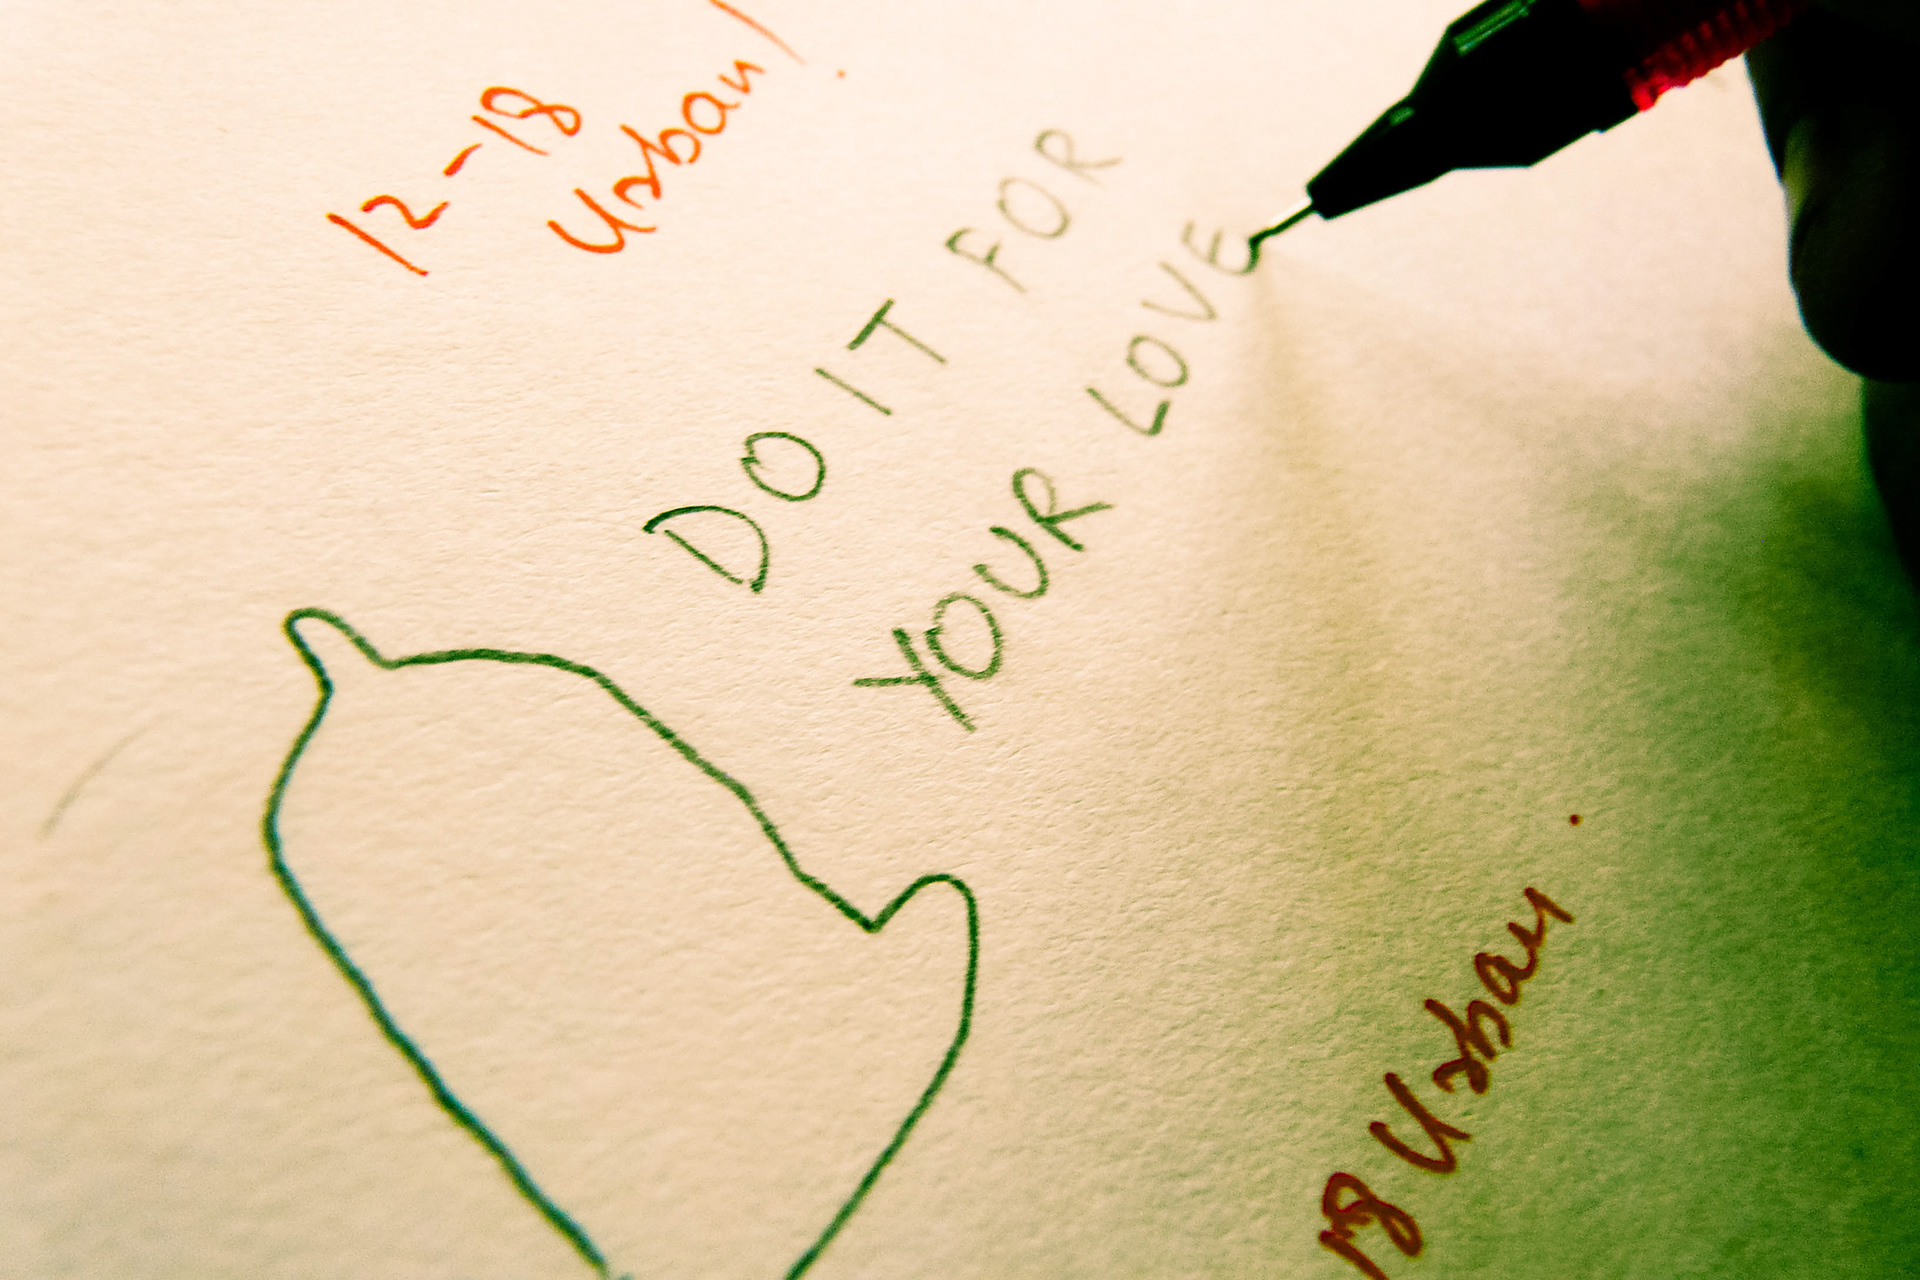 12-18
Urban!
DO IT FOR
YOUR LOVE
18 Urban.